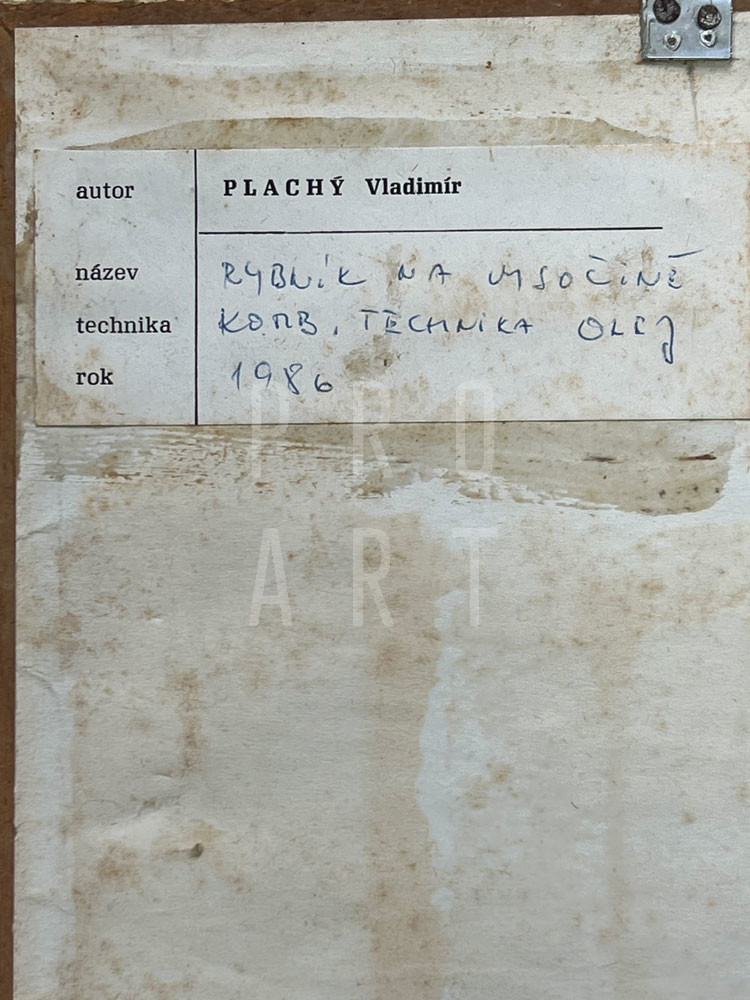 autor PLACHÝ Vladimír
název RYBNÍK NA VYSOČINĚ
technika KOMB. TECHNIKA OLEJ
rok 1986
PRO
ART